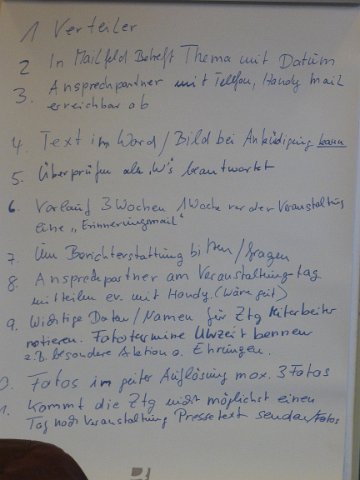 1 Verteiler
2 In Mailfeld Betreff Thema mit Datum
3. Ansprechpartner mit Telefon, Handy Mail
erreichbar ab
4. Text im Word / Bild bei Ankündigung kann
5. Überprüfen alle "W's" beantwortet
6. Vorlauf 3 Wochen 1 Woche vor der Veranstaltung
eine "Erinnerungsmail"
7. Um Berichterstattung bitten / fragen
8. Ansprechpartner am Veranstaltungstag
mitteilen ev. mit Handy. (Wäre gut)
9. Wichtige Daten / Namen für Ztg Mitarbeiter
notieren. Fototermine Uhrzeit nennen
z.B. besondere Aktion o. Ehrungen.
0. Fotos im guter Auflösung max. 3 Fotos
1. Kommt die Ztg nicht möglichst einen
Tag nach Veranstaltung Pressetext senden / Fotos